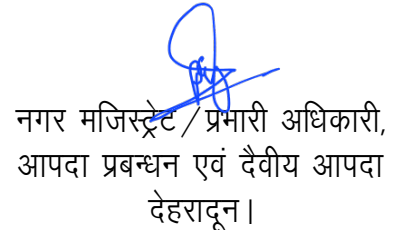 नगर मजिस्ट्रेट/प्रभारी अधिकारी,
आपदा प्रबन्धन एवं दैवीय आपदा
देहरादून।